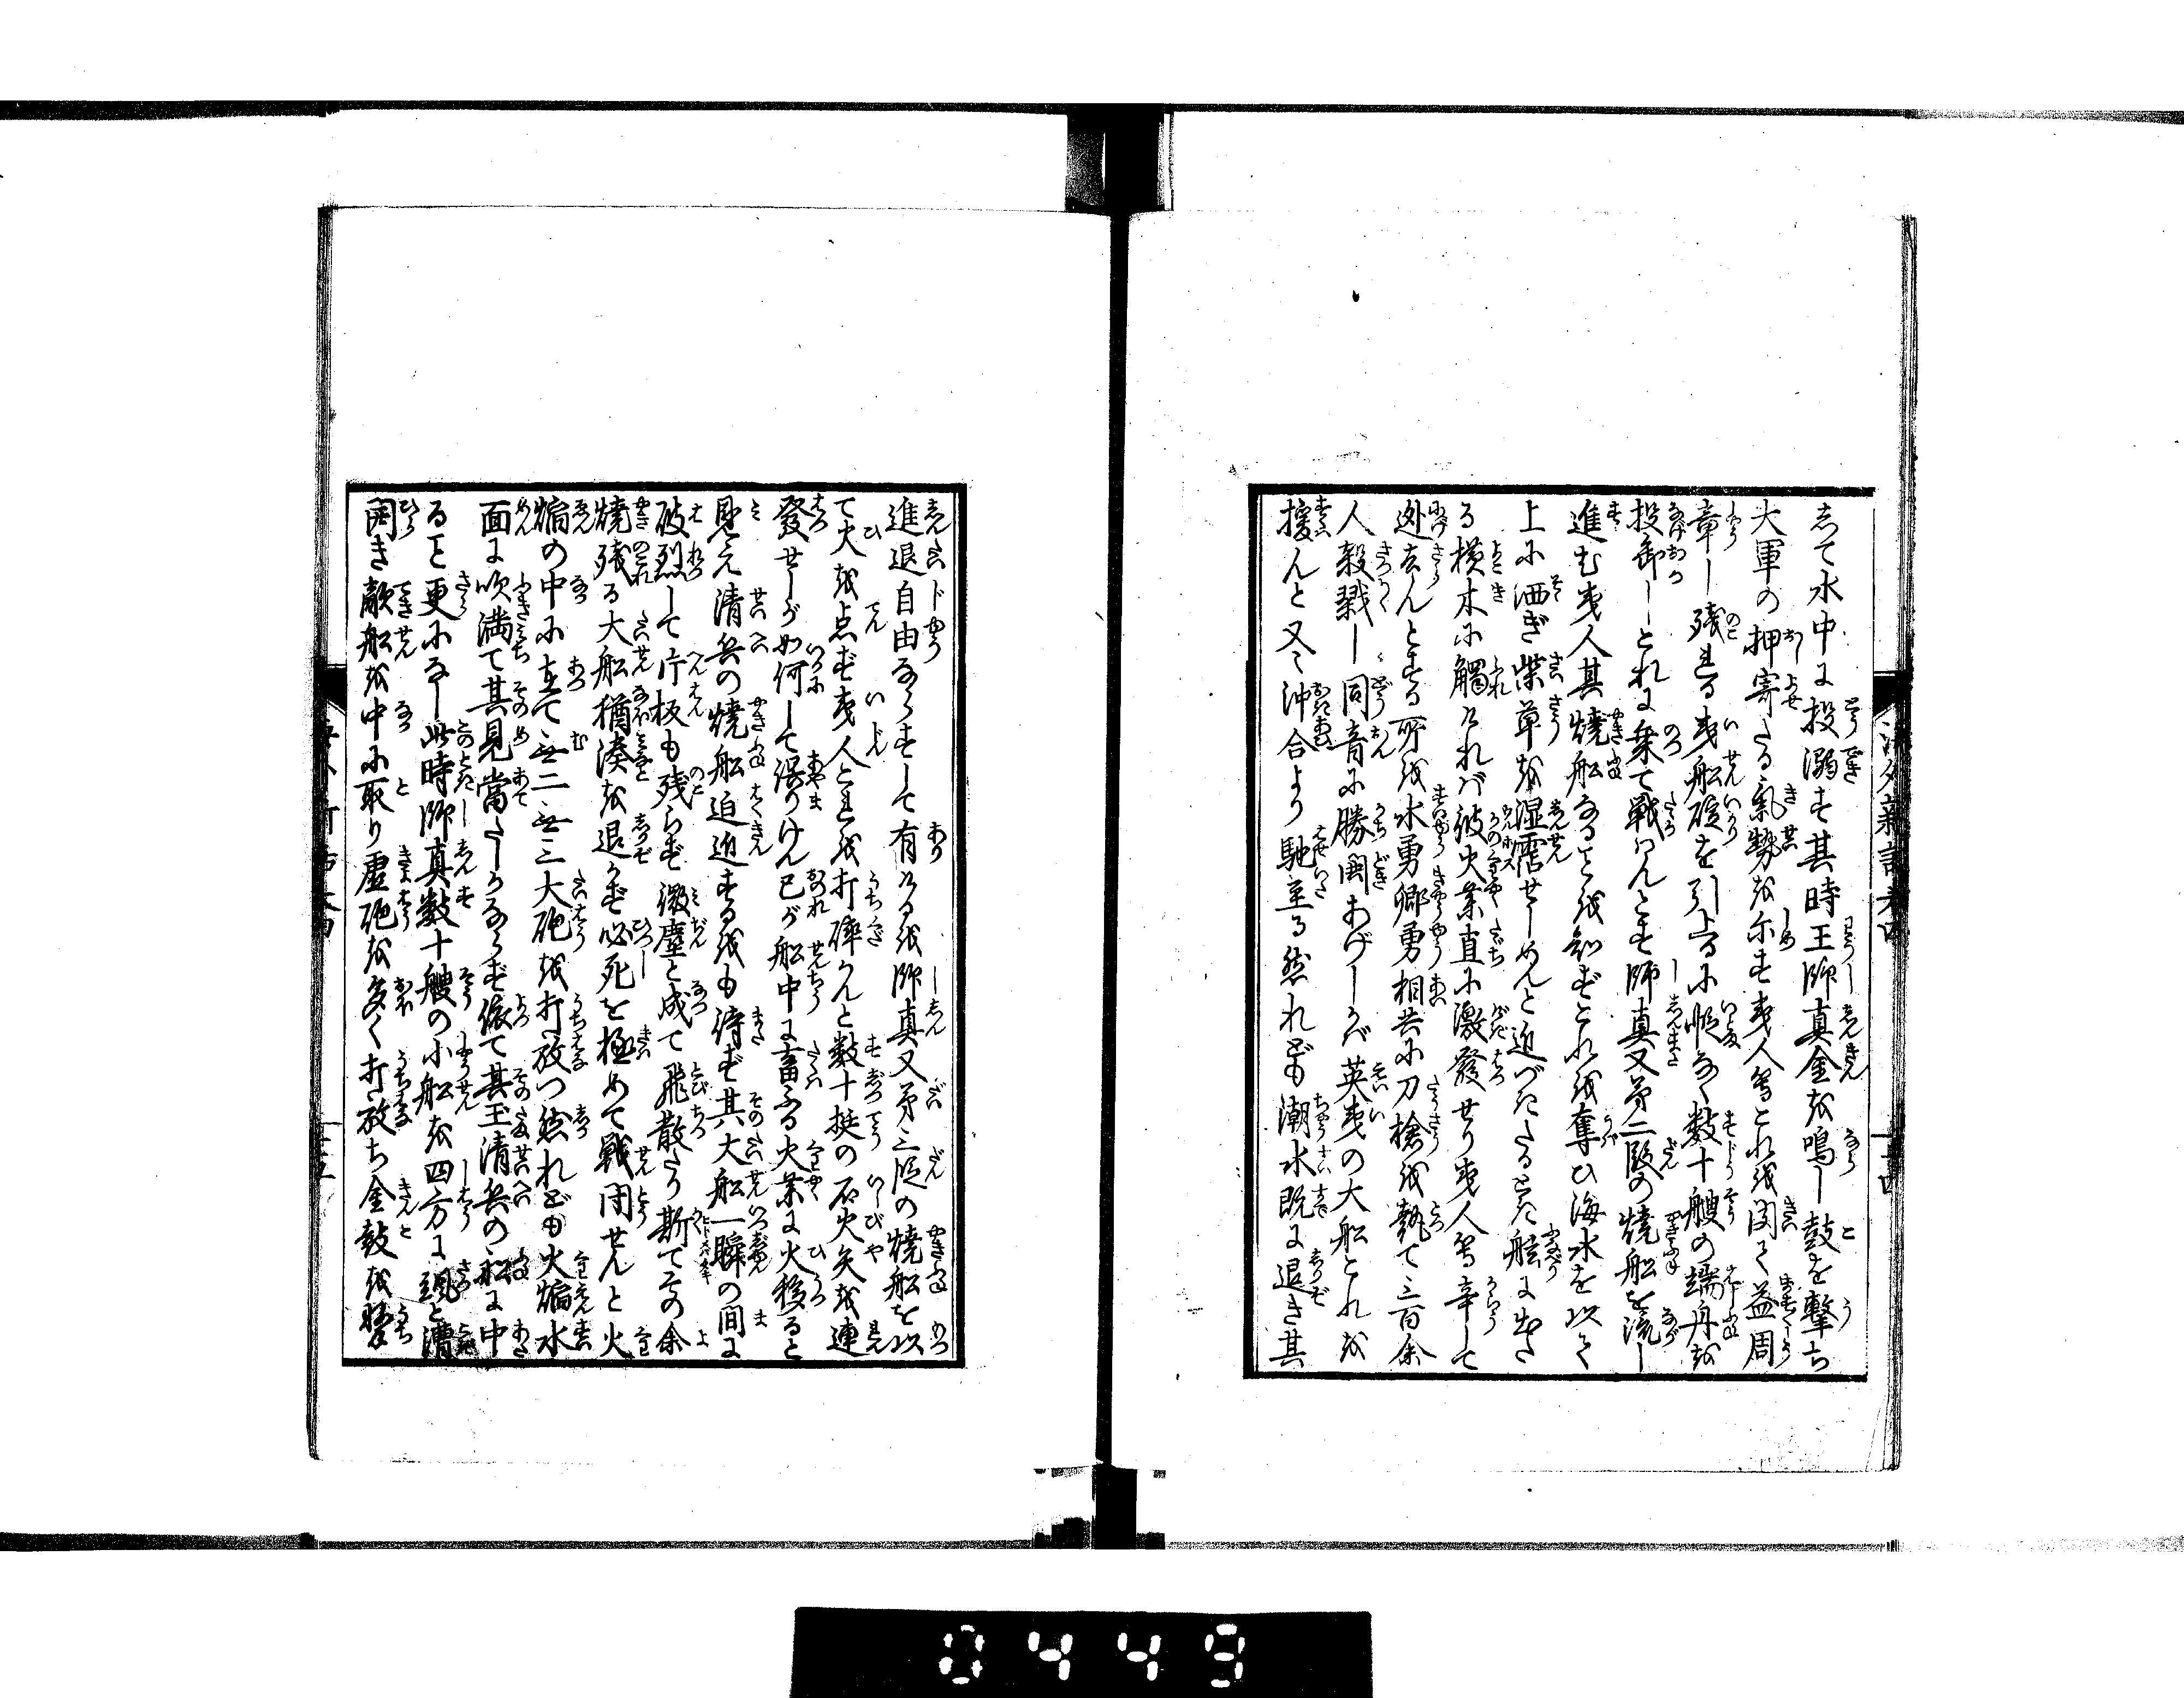 して水中に投溺す其時王師真金を鳴し鼓を撃ち
大軍の押寄たる氣勢を示す夷人等これを聞て益周
章し残れる夷船碇を引上るに暇なく数十艘の端舟を
投卸しこれに乗て戦はんとす師真又第二段の焼船を流し
進む夷人其焼船なるを知ずこれを奪ひ海水を以て
上に洒ぎ柴草を湿霑せしめんと迫づきたるとき舷に出た
る横木に觸ければ彼火薬直に激發せり夷人等辛して
迯去んとする所を水勇郷勇相共に刀槍を執て三百余
人殺戮し同音に勝閧あげしかば英夷の大船これを
援んと又々沖合より馳至る然れども潮水既に退き其
進退自由ならずして有ける を師真又第三段の焼船を以
て火を点ず夷人これを打碎かんと数十挺の石火矢を連
發せしが如何して誤りけん己が船中に畜ふる火薬に火移ると
見え清兵の焼船迫近するをも待ず其大船一瞬の間に
破烈して片板も残らず微塵と成て飛散たり斯てその余
焼残る大船猶湊を退かず必死を極めて戦闘せんと火
煽の中に立て無二無三大砲を打放つ然れども火煽水
面に吹満て其見當たしかならず依て其玉清兵の船に中
ること更になし此時師真数十艘の小船を四方に颯と漕
開き敵船を中に取り虚砲を多く打放ち金鼓を
0449